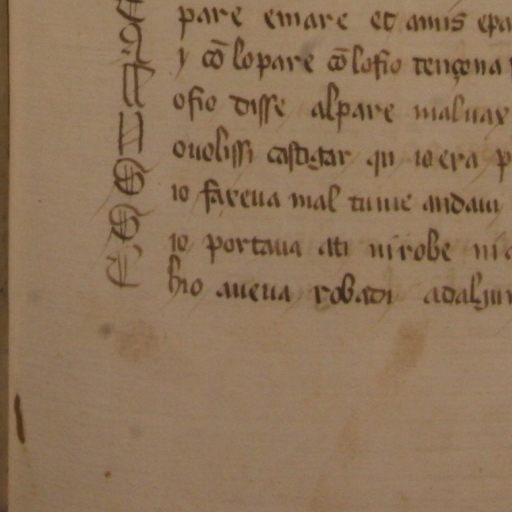 pare emare et amis epa
y cō lo pare cō lo fio tençona
ofio disse al pare maluax
ouolissi castigar qn io era p
io faxeua mal tu me andaui
io portaua ati ni robe ni
hio aueua robadi adalgun